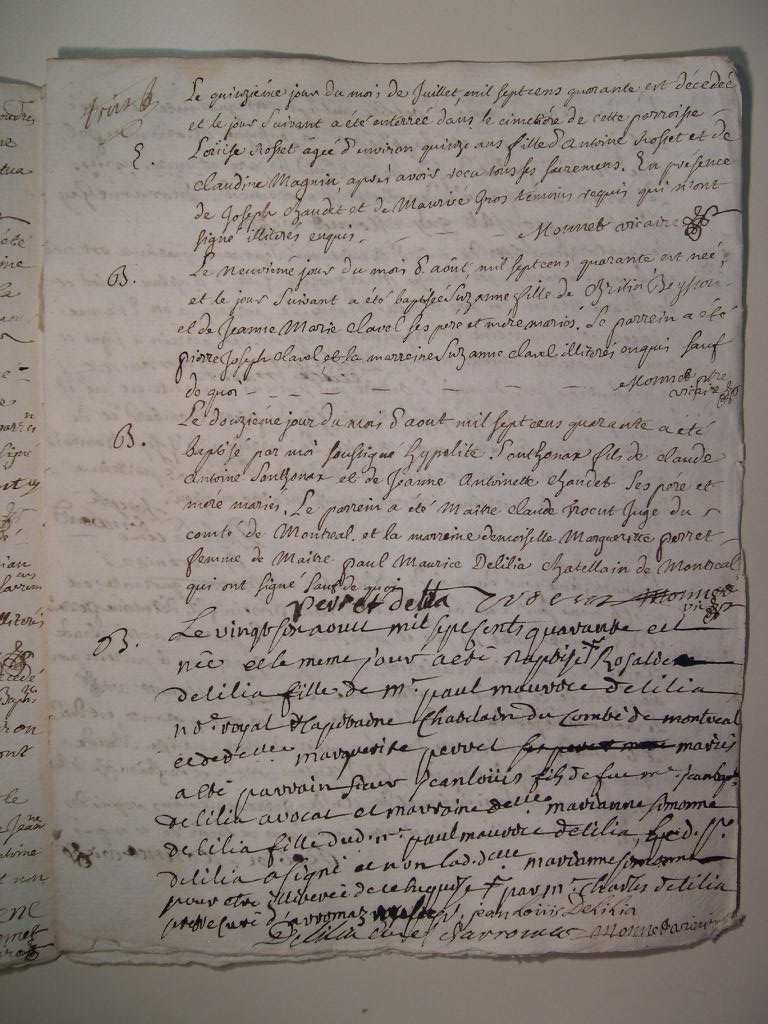 Le quinzième jour du mois de Juillet, mil sept cens quarante est décédéé
et le jour suivant a eté enterréé dans le cimetiére de cette parroisse
S. Loüise Rosset agéé d'environ quinze ans fille d'Antoine Rosset et de
claudine Magnin, après avoir recu tous ses sacremens. En presence
de Joseph chaudet et de Maurice Gros temoins requis qui n'ont
signé illiterés enquis. Monnet vicaire
B. Le neuviéme jour du mois d'aout, mil sept cens quarante est néé,
et le jour suivant a été baptiséé Suzanne fille de
et de Jeanne Marie clavel ses pére et mére mariés. Le parrein a été
pierre Joseph clavel et la marreine Suzanne clavel illiterés enquis sauf
de quoi Monnet ptre
vicaire
B. Le douziéme jour du mois d'aout mil sept cens quarante a été
Baptisé par moi soussigné hypolite Sonthonax fils de claude
Antoine Sonthonax et de Jeanne Antoinette chaudet ses pere et
mere mariés. Le parrein a été Maitre claude Juge du
comté de Montreal, et la marreine demoiselle Marguerite perret
femme de Maitre paul Maurice Delilia chatellain de Montreal
qui ont signé sauf de quoi
perret delilia Monnet
vic
B. Le vingt aout mil sept cents quarante est
née et le meme jour a eté Baptisée Rosalde
delilia fille de mr. paul maurice delilia
nore. royal & Capitaine Chatelain du Comté de montreal
et de delle. marguerite perret mariés
a eté parrain sieur Jean loüis fils de feu mr.
delilia avocat et marraine delle. marianne simonne
delilia fille dud. mr. paul maurice delilia,
delilia a signé et non lad. delle marianne simonne
pour etre illiterée de ce enquise par mr. Charles delilia
pretre curé d'arromaz jean loüis Delilia
Delilia curé d'arromas Monnet vicaire